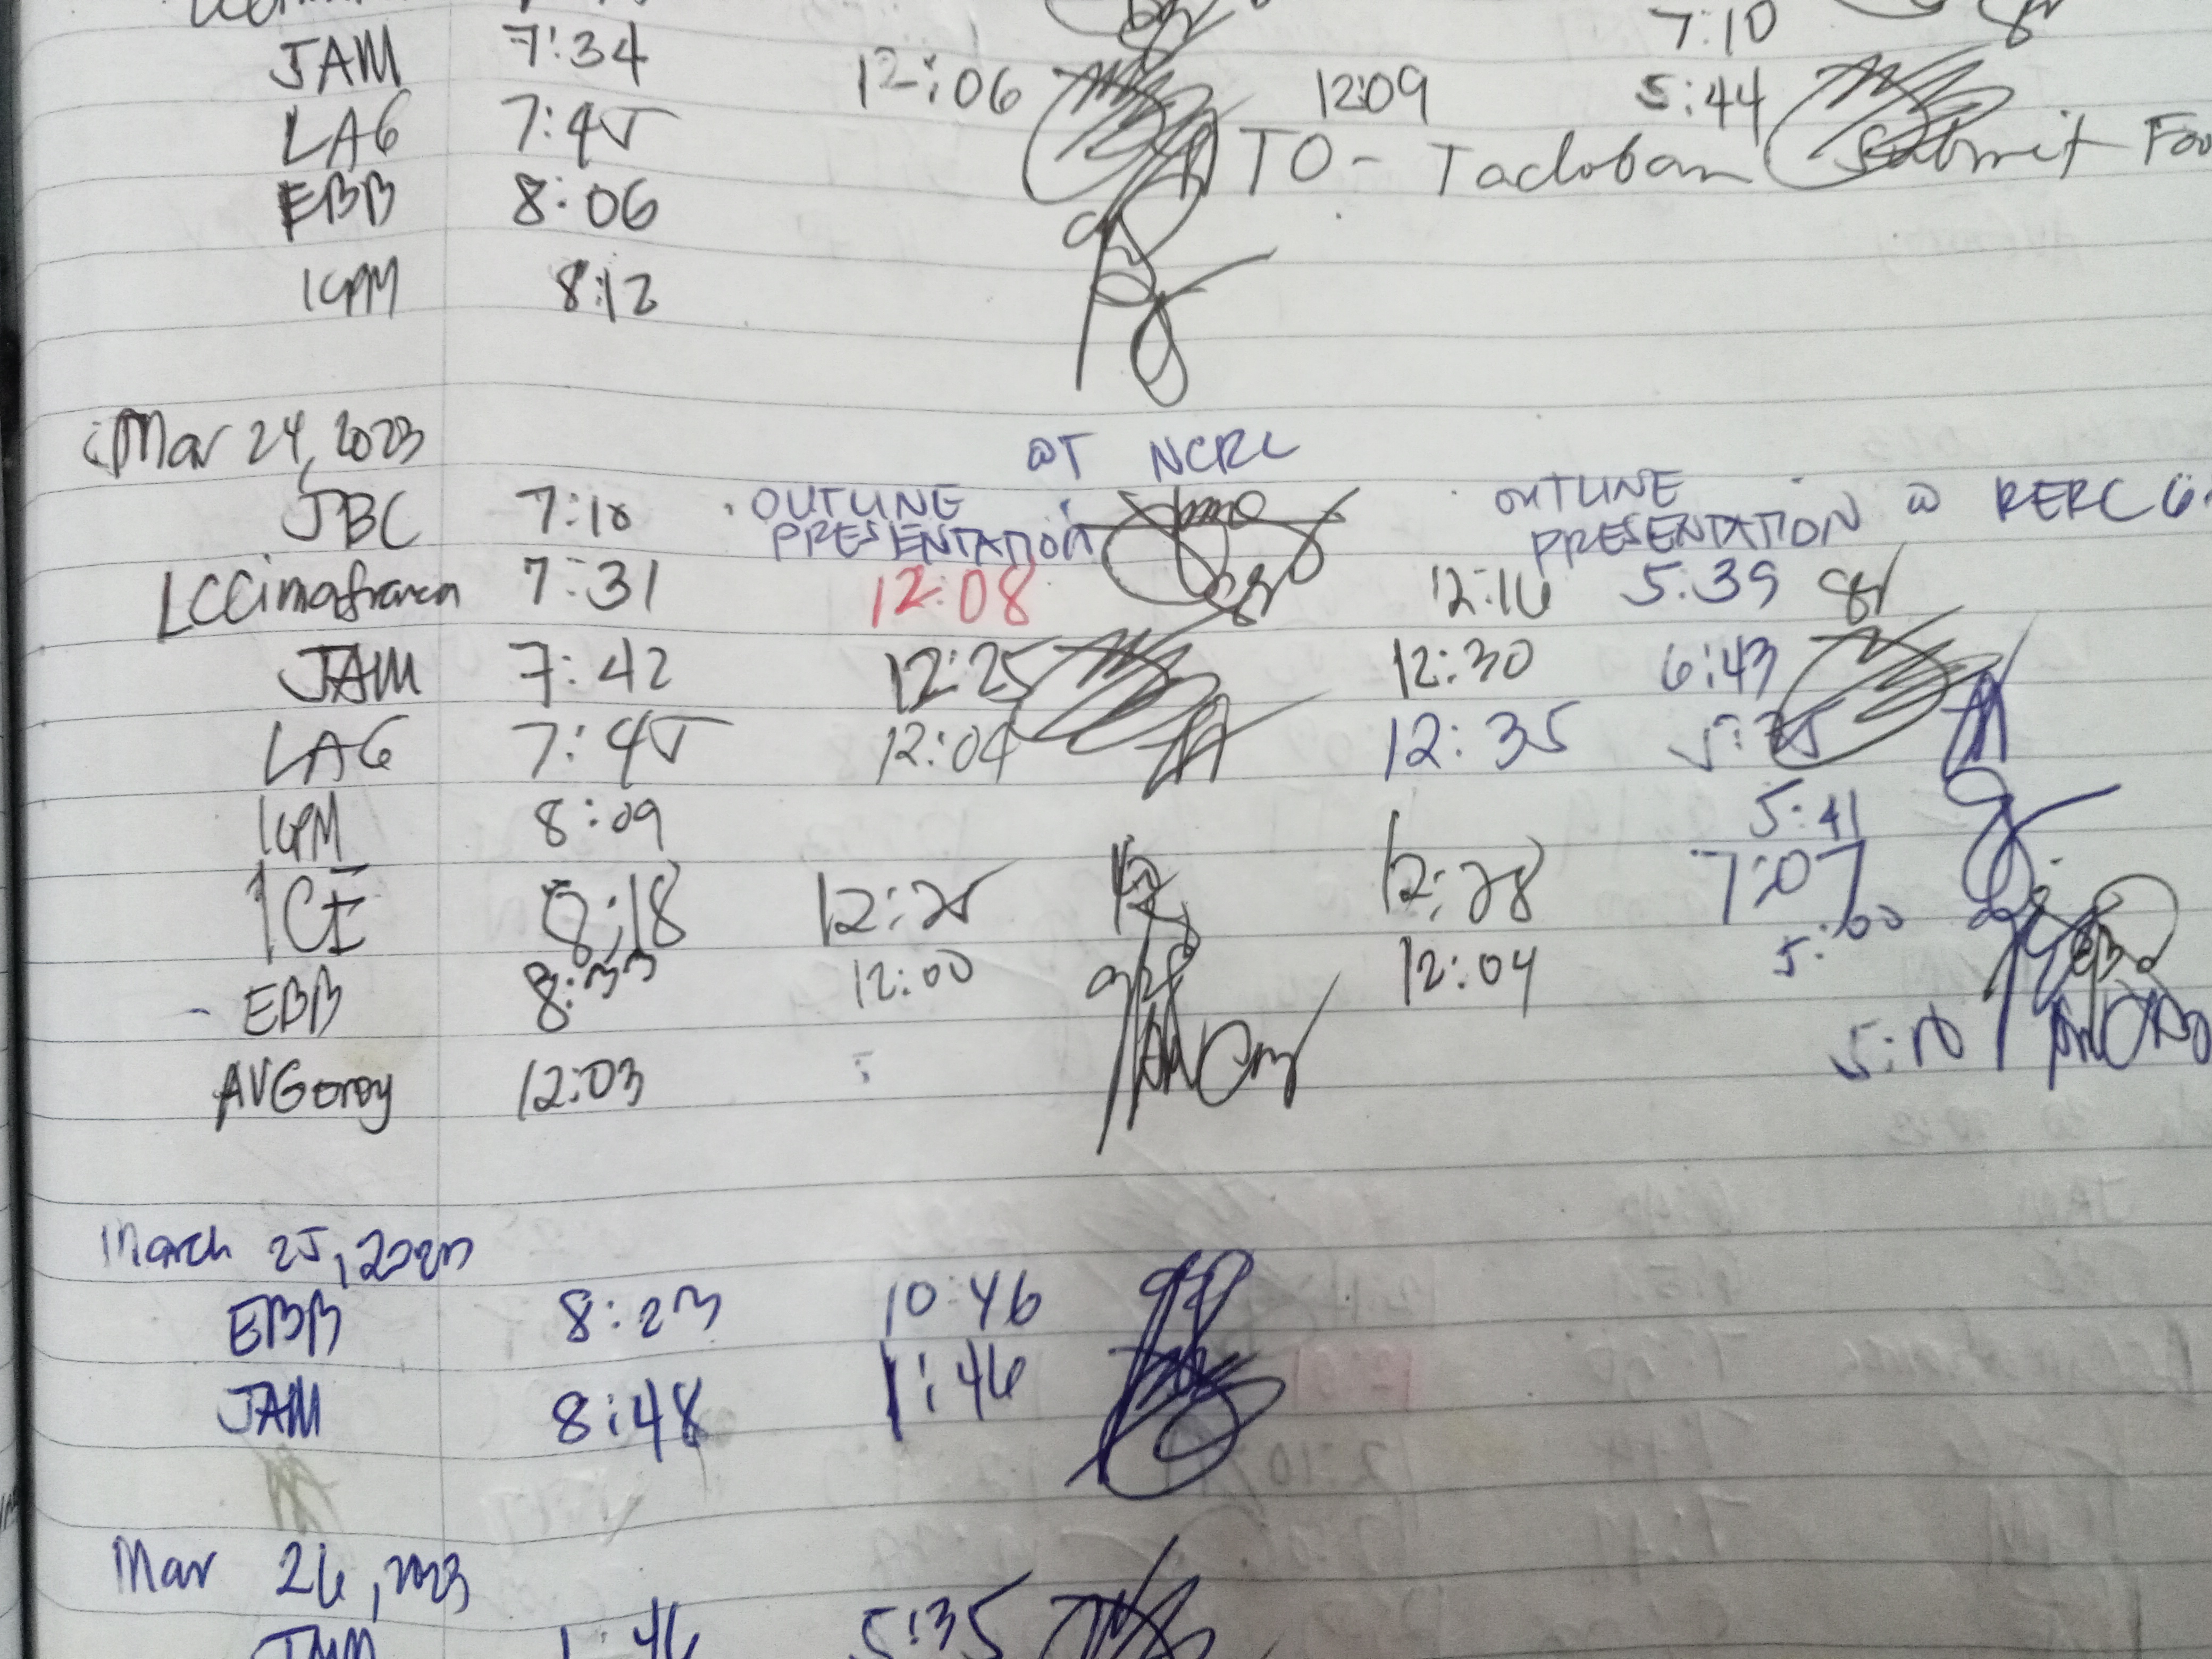 7:10
JAM 7:34 12:06 12:09 5:44
LAG 7:45 TO - Tacloban Submit
EBB 8:06
IGPM 8:12
Mar 24, 2023
@T NCRC
JBC 7:18 OUTLINE OUTLINE
PRESENTATION PRESENTATION @ RERC
LCCimafranca 7:31 12:08 12:16 5:39
JAM 7:42 12:25 12:30 6:43
LAG 7:45 12:04 12:35 5:35
IGPM 8:09 5:41
ICE 8:18 12:25 12:28 7:07
EBB 8:33 12:00 12:04 5:00
AVGoroy 12:03 5:10
March 25, 2023
EBB 8:23 10:46
JAM 8:48 1:46
Mar 26, 2023
JAM 1:46 5:35